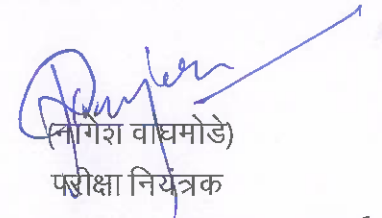 (नागेश वाघमोडे)
परीक्षा नियंत्रक